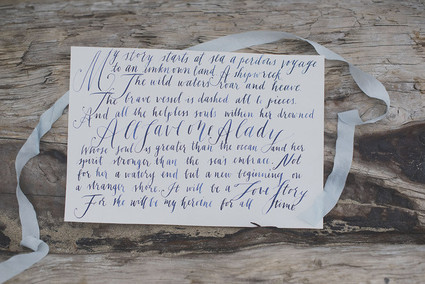 My story starts at sea a perilous voyage
to an unknown land A shipwreck
The wild waters roar and heave
The brave vessel is dashed all to pieces.
And all the helpless souls within her drowned
All save one A lady
Whose soul is greater than the ocean and her
spirit stronger than the sea's embrace. Not
for her a watery end but a new beginning on
a stranger shore. It will be a Love Story
For she will be my heroine for all time